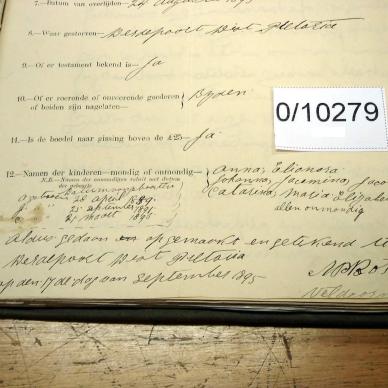 7.—Datum van overlijden— 24 Augustus 1895
8.—Waar gestorven— Derdepoort Dist Pretoria
9.—Of er testament bekend is— Ja
10.—Of er roerende of onroerende goederen of beiden zijn nagelaten— Byden
0/10279
11.—Is de boedel naar gissing boven de £25— Ja
12.—Namen der kinderen—mondig of onmondig— Anna, Elionora,
N.B.—Namen der onmondigen voluit met datum der geboorte
Johanna, Jacomina, Jaco
Catarina, Maria Elizabe
allen onmondig
28 April 1889
25 September 1891
2 Maart 1895
Aldus gedaan en opgemaakt en getekend te
Derdepoort Dist Pretoria
op den 17 de dag van September 1895